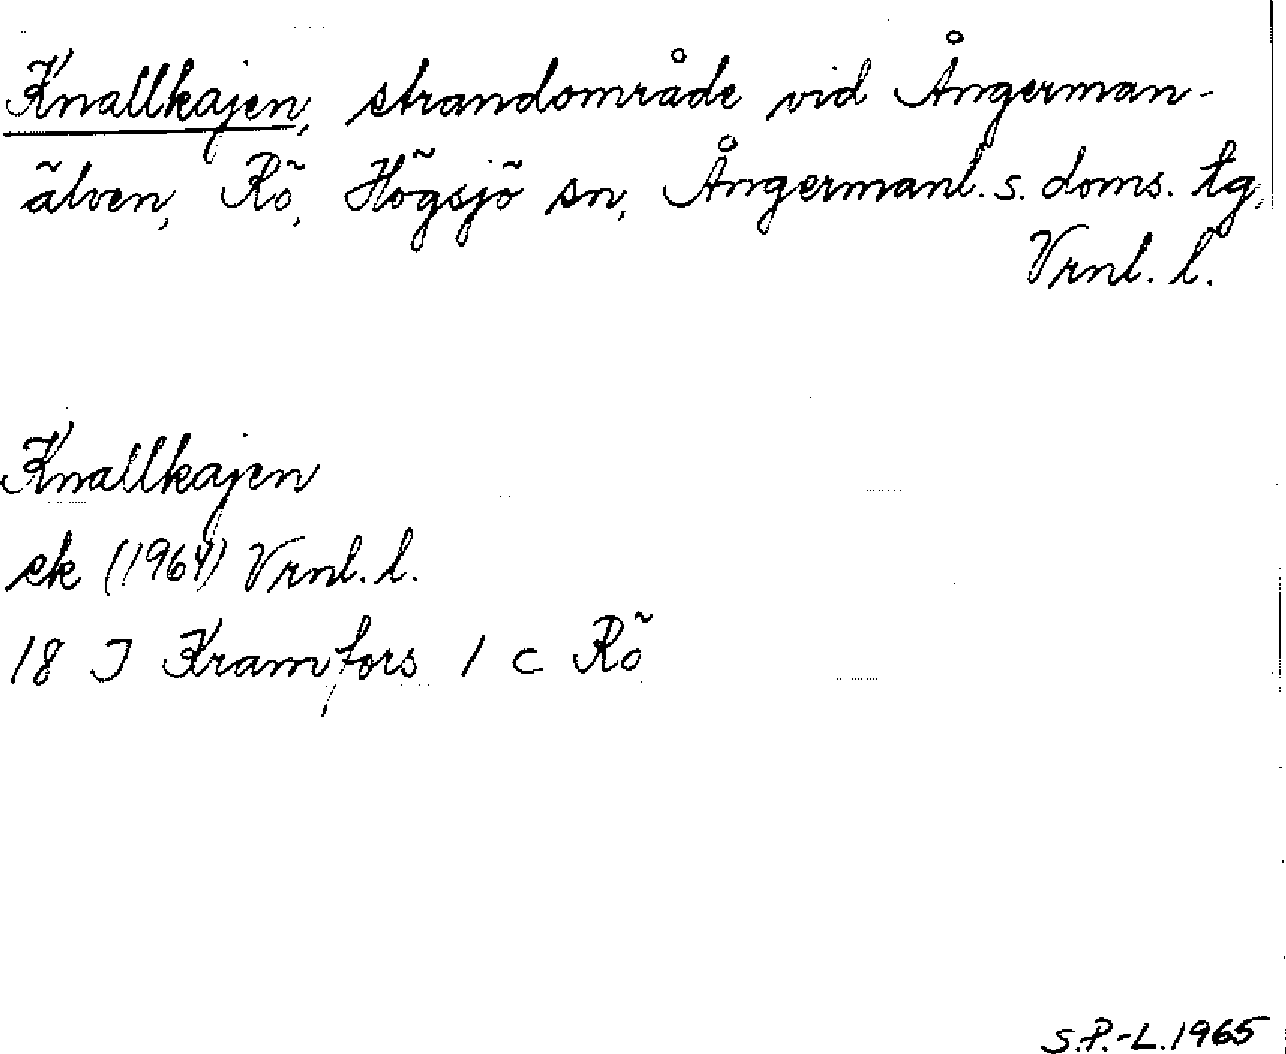 Knallkajen, strandområde vid Ångerman-
älven, Rö, Högsjö sn, Ångermanl. s. doms. tg,
Vrnl. l.
Knallkajen
ek (1964) Vrnl. l.
18 J Kramfors 1 c Rö
S.P.-L. 1965